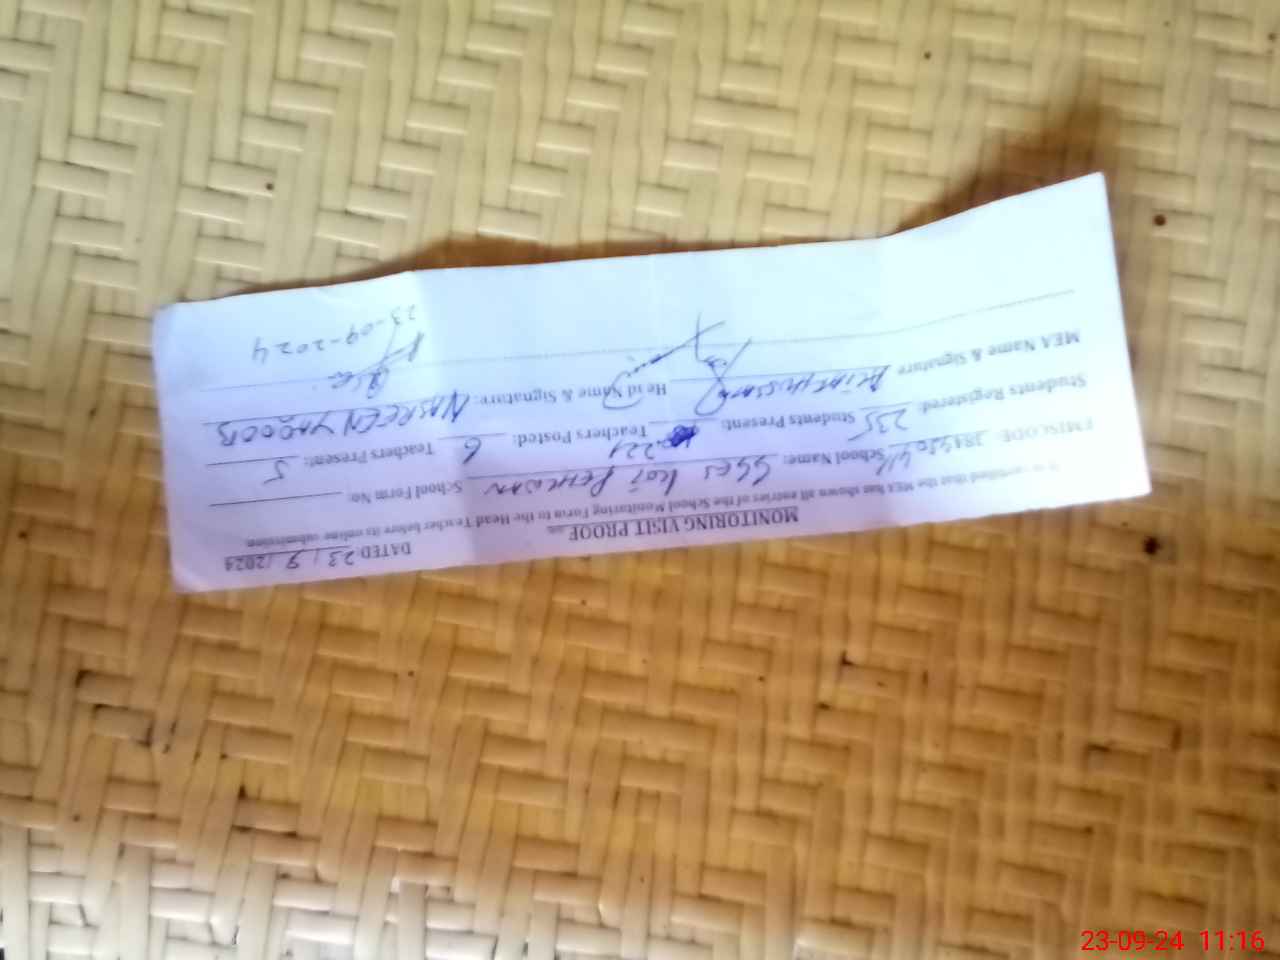 MONITORING VISIT PROOF
DATED 23/9/2024
It is certified that the MEA has shown all entries of the School Monitoring Form to the Head Teacher before its online submission
EMISCODE: School Name: GGES School Form No:
Students Registered: 235 Students Present: 221 Teachers Posted: 6 Teachers Present: 5
MEA Name & Signature Head Name & Signature: NASREEN YAQOOB
23-09-2024
23-09-24 11:16